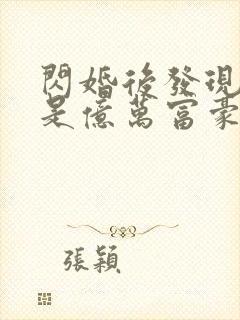 閃婚後發現
是億萬富豪
張穎